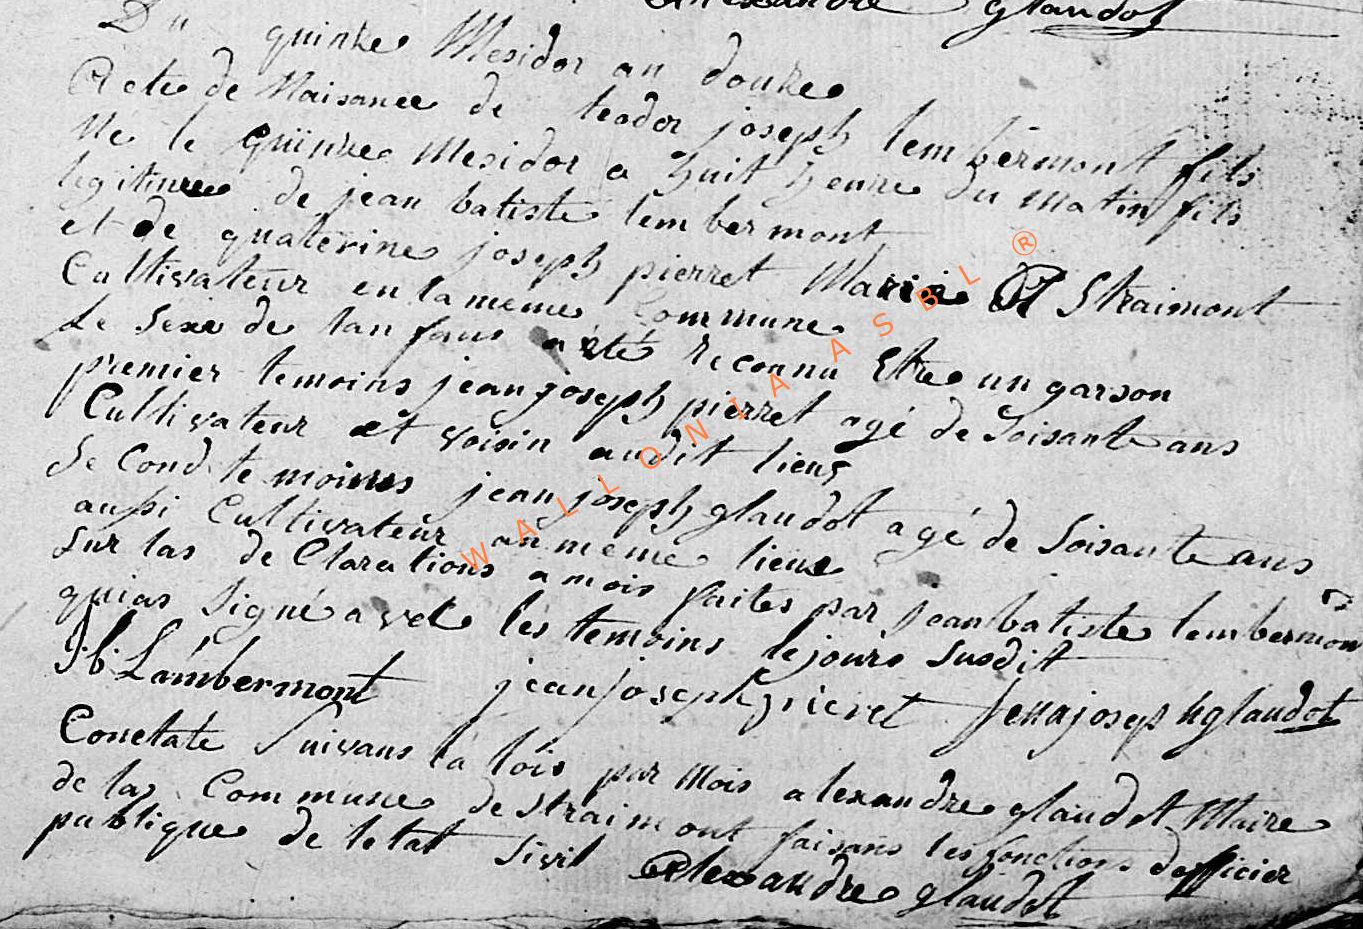 Alexandre glaudot
Du quinze Mesidor an douze
Acte de Naisance de teodor joseph lembermont fils
Né le quinze Mesidor a huit heure du matin fils
legitimee de jean batiste lembermont
et de quaterine joseph pierret Mariè A Straimont
Cultivateur en la meme Commune
Le Sexe de lanfans a eté reconnu Etre un garson
premier temoins jean joseph pierret agé de Soisante ans
Cultivateur et voisin audit lieus
Second temoins jean joseph glaudot agé de Soisante ans
aussi Cultivateur an meme lieux
Sur las de Clarations a mois faites par jean batiste lembermon
quias Signé avec les temoins le jours Susdit
J. b. Lambermont jean joseph pieret jena joseph glaudot
Constate Suivans la lois par mois alexandre glaudot Maire
de las Commune de Straimont faisans les fonctions dofficier
publique de letat Sivil Alexandre glaudot
WALLONIA ASBL ®